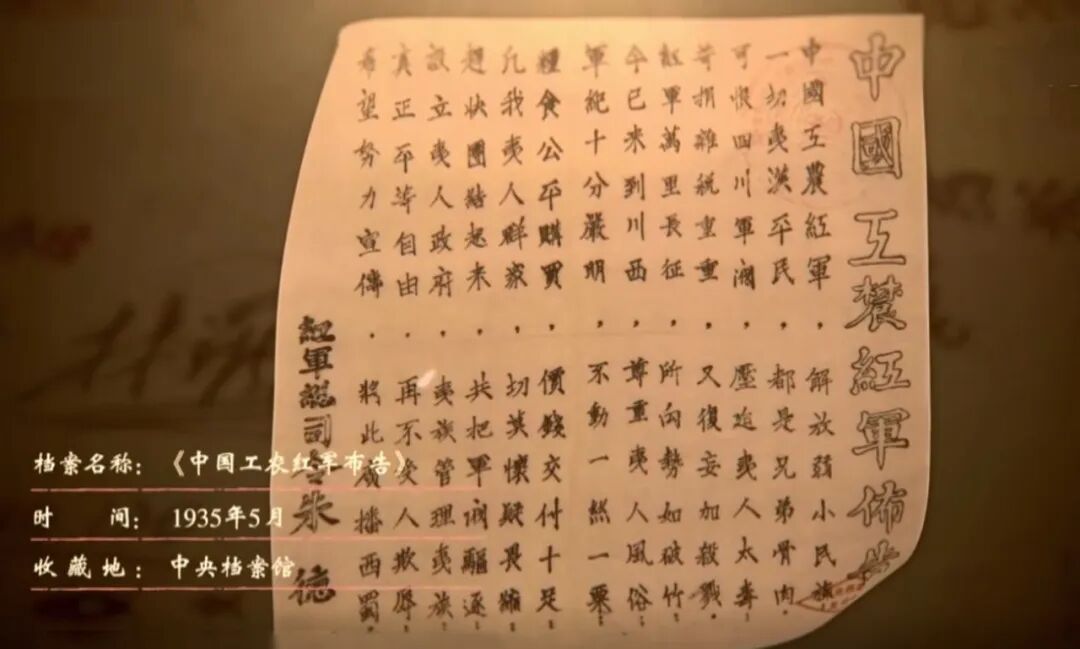 中國工農紅軍佈告
中國工農紅軍，解放弱小民族．
一切夷漢平民，都是兄弟骨肉．
可恨四川軍閥，壓迫夷人太毒．
苛捐雜稅重重，又復妄加殺戮．
紅軍萬里長征，所向勢如破竹．
今已來到川西，尊重夷人風俗．
軍紀十分嚴明，不動一絲一粟．
糧食公平購買，價錢交付十足．
凡我夷人群眾，切莫懷疑畏縮．
趕快團結起來，共把軍閥驅逐．
設立夷人政府，夷族管理夷族．
真正平等自由，再不受人欺辱．
希望努力宣傳，將此廣播西蜀．
紅軍總司令朱德
档案名称：《中国工农红军布告》
时间：1935年5月
收藏地：中央档案馆